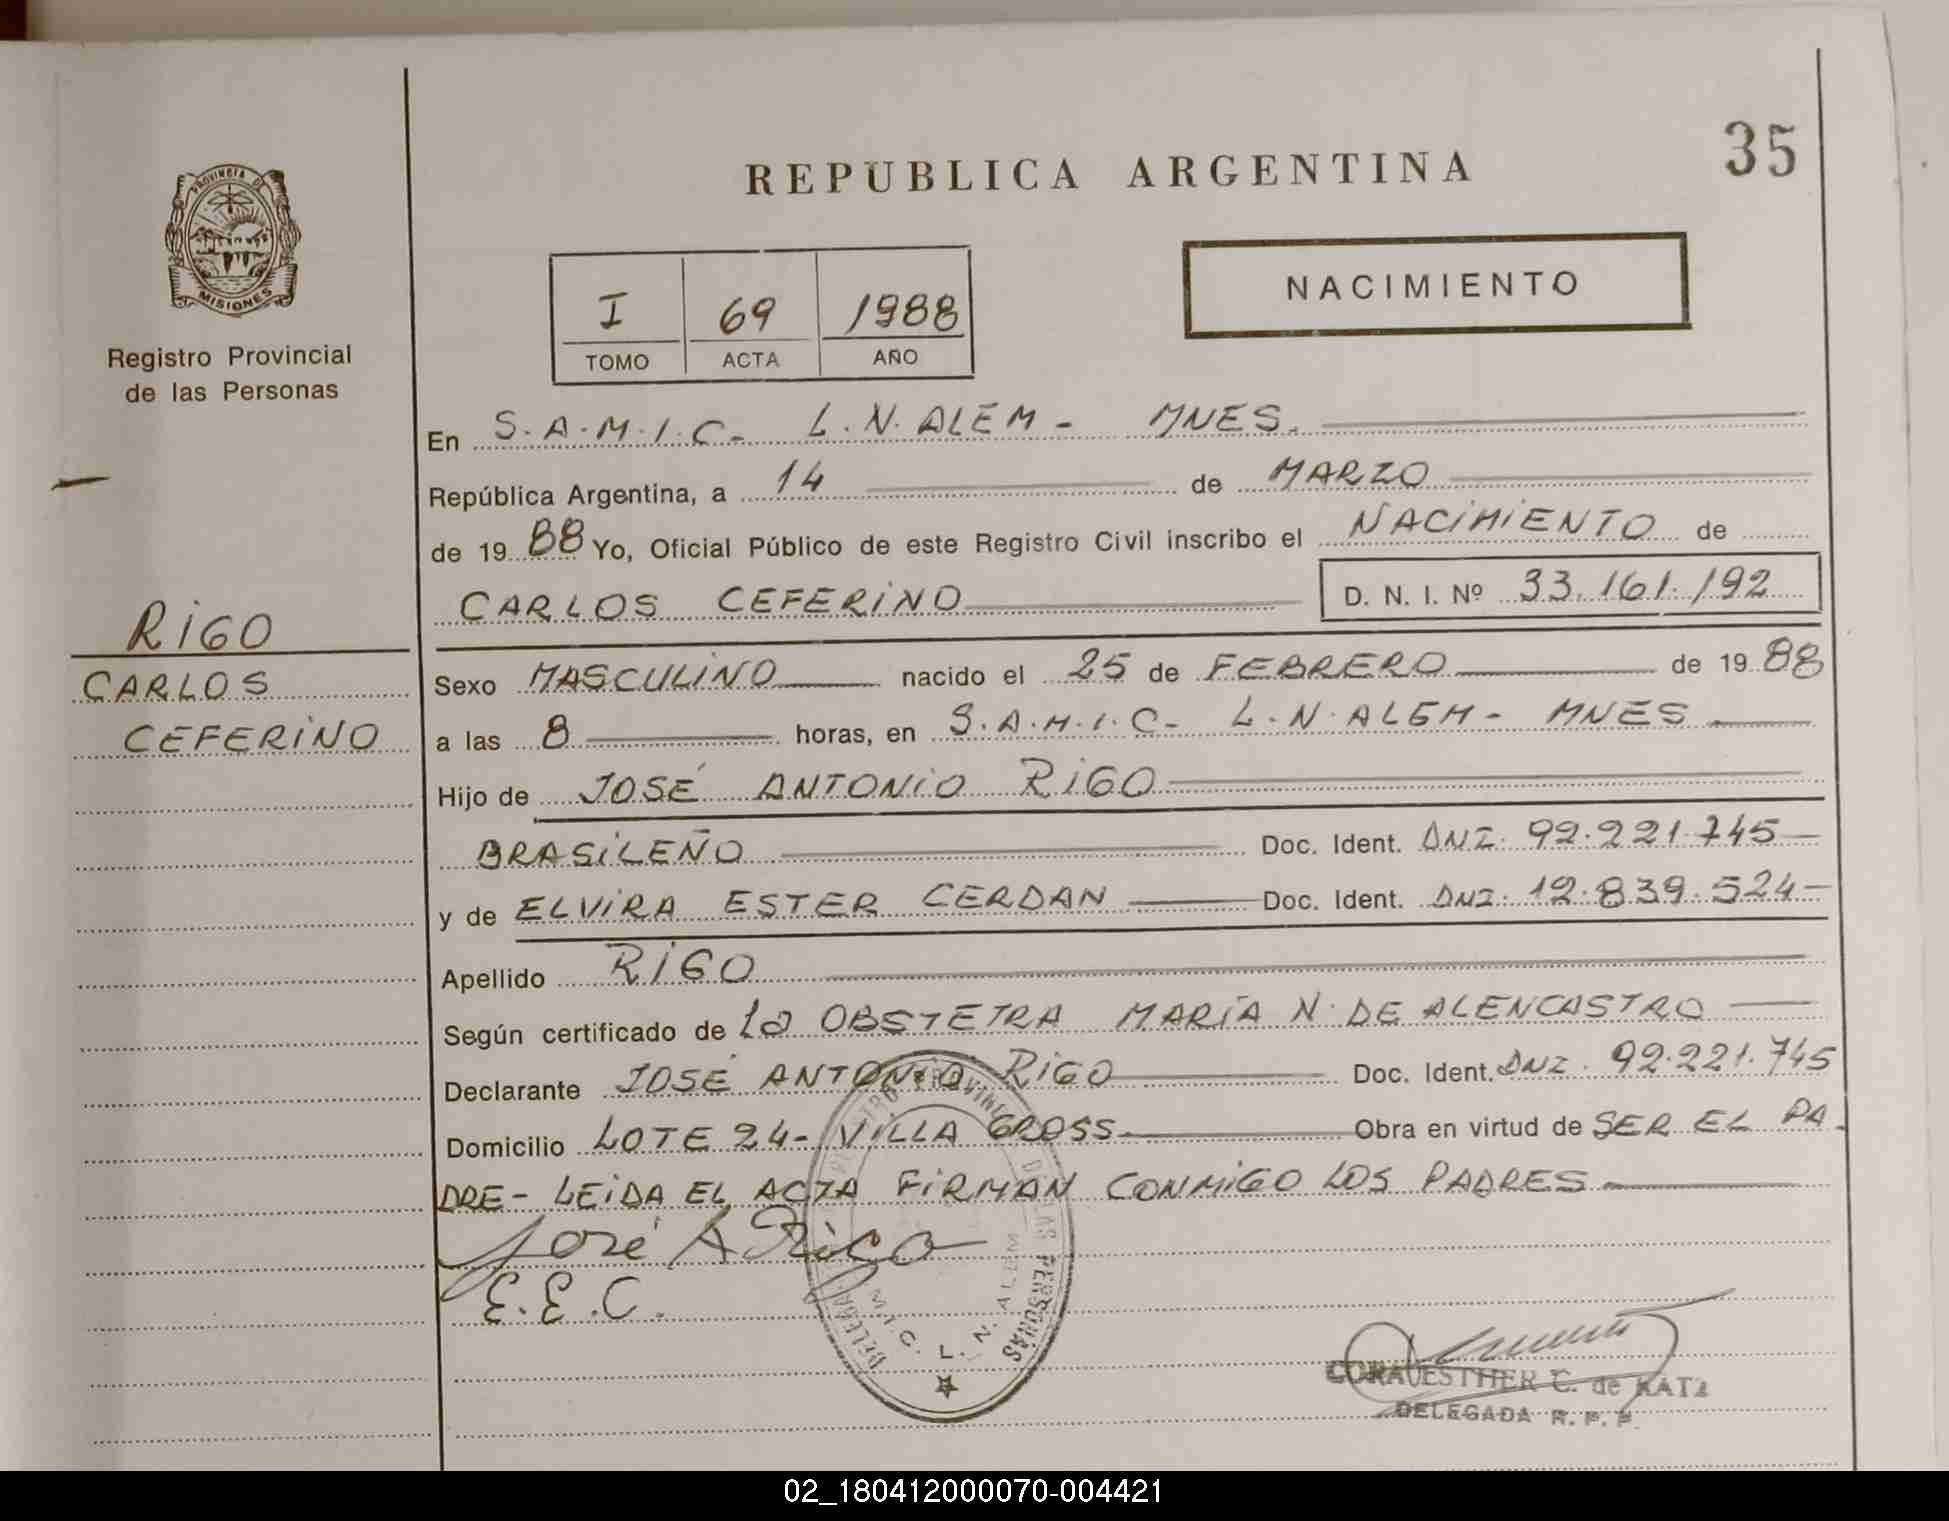 35
REPUBLICA ARGENTINA
PROVINCIA DE
MISIONES
Registro Provincial
de las Personas
NACIMIENTO
I 69 1988
TOMO ACTA AÑO
En S.A.M.I.C- L.N.ALEM- MNES.
República Argentina, a 14 de MARZO
de 19 88 Yo, Oficial Público de este Registro Civil inscribo el NACIMIENTO de
CARLOS CEFERINO D. N. I. Nº 33.161.192
RIGO
CARLOS
CEFERINO
Sexo MASCULINO nacido el 25 de FEBRERO de 19 88
a las 8 horas, en S.A.M.I.C- L.N.ALEM- MNES
Hijo de JOSÉ ANTONIO RIGO
BRASILEÑO Doc. Ident. DNI. 92.221.745
y de ELVIRA ESTER CERDAN Doc. Ident. DNI. 12.839.524
Apellido RIGO
Según certificado de la OBSTETRA MARÍA N. DE ALENCASTRO
Declarante JOSÉ ANTONIO RIGO Doc. Ident. DNI. 92.221.745
Domicilio LOTE 24- VILLA GROSS Obra en virtud de SER EL PA-
DRE- LEIDA EL ACTA FIRMAN CONMIGO LOS PADRES
José A Rigo
E.E.C.
L.N. ALEM
DE LAS PERSONAS
CORA ESTHER C. de KATZ
DELEGADA R. P. P.
02_180412000070-004421